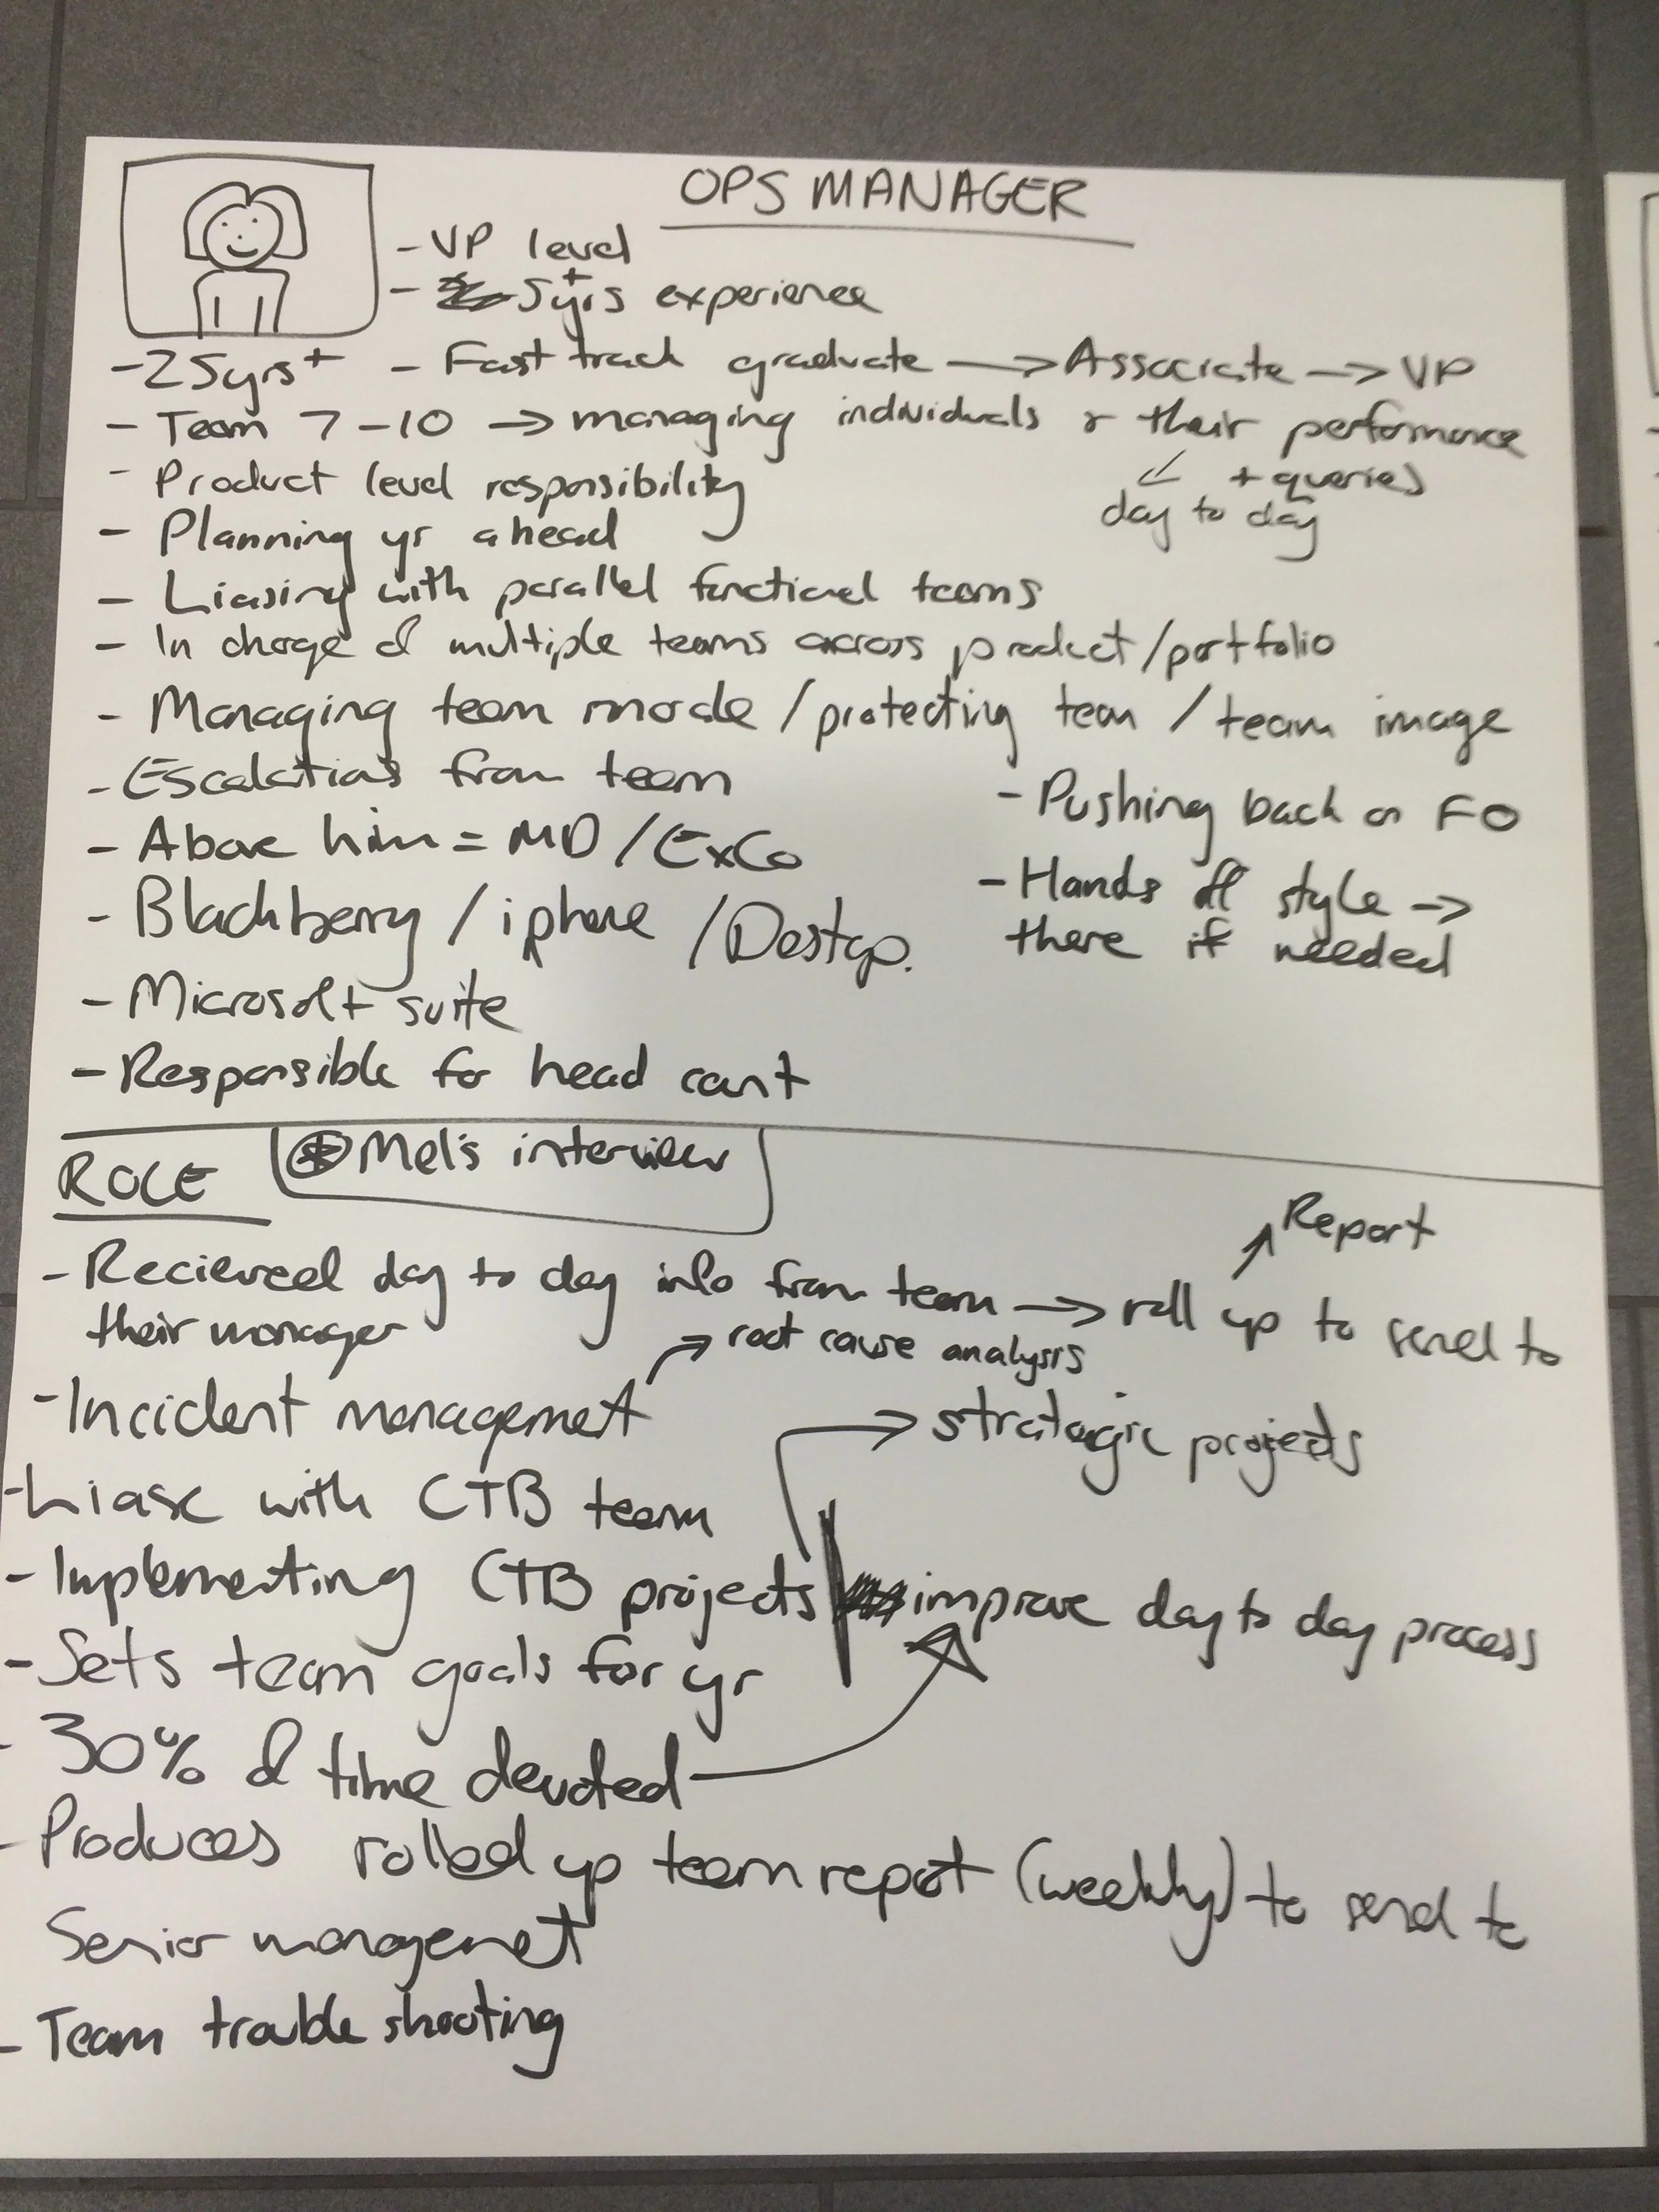 OPS MANAGER
- VP level
- 5yrs+ experience
- 25yrs+ - Fast track graduate → Associate → VP
- Team 7-10 → managing individuals & their performance
+ queries
day to day
- Product level responsibility
- Planning yr ahead
- Liasing with parallel functional teams
- In charge of multiple teams across product/portfolio
- Managing team morale / protecting team / team image
- Escalations from team
- Pushing back on FO
- Above him = MD / ExCo
- Hands off style →
there if needed
- Blackberry / iphone / Destop.
- Microsoft suite
- Responsible for head count
ROLE
* Mel's interview
Report
- Recieveed day to day info from team → roll up to send to
their manager
root cause analysis
- Incident management
strategic projects
- Liase with CTB team
- Implementing CTB projects improve day to day process
- Sets team goals for yr
- 30% of time devoted
- Produces rolled up team report (weekly) to send to
Senior management
- Team trouble shooting